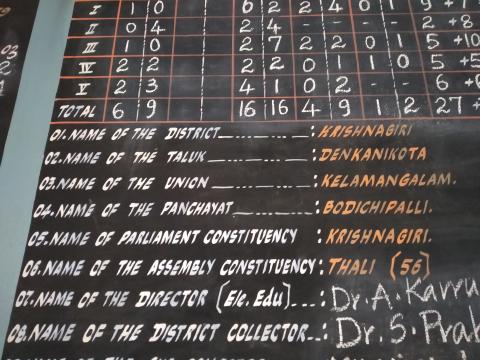 I 1 0 6 2 2 4 0 1 9
II 0 4 2 4 - - - - 2 +8
III 1 0 2 7 2 2 0 1 5 +10
IV 2 2 2 2 0 1 1 0 5
V 2 3 4 1 0 2 - - 6
TOTAL 6 9 16 16 4 9 1 2 27 +
01. NAME OF THE DISTRICT : KRISHNAGIRI
02. NAME OF THE TALUK : DENKANIKOTA
03. NAME OF THE UNION : KELAMANGALAM.
04. NAME OF THE PANCHAYAT : BODICHIPALLI.
05. NAME OF PARLIAMENT CONSTITUENCY : KRISHNAGIRI.
06. NAME OF THE ASSEMBLY CONSTITUENCY : THALI (56)
07. NAME OF THE DIRECTOR (Ele. Edu) : Dr. A. Karru
08. NAME OF THE DISTRICT COLLECTOR : Dr. S. Prab